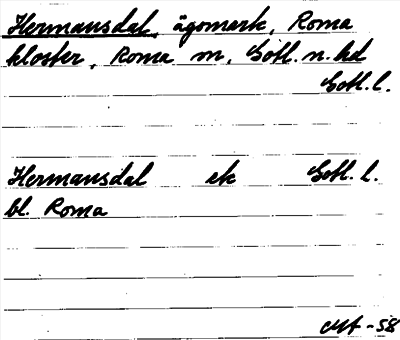 Hermansdal, ägomark, Roma
kloster, Roma sn, Gotl. n. hd
Gotl. l.
Hermansdal ek Gotl. l.
bl. Roma
-58